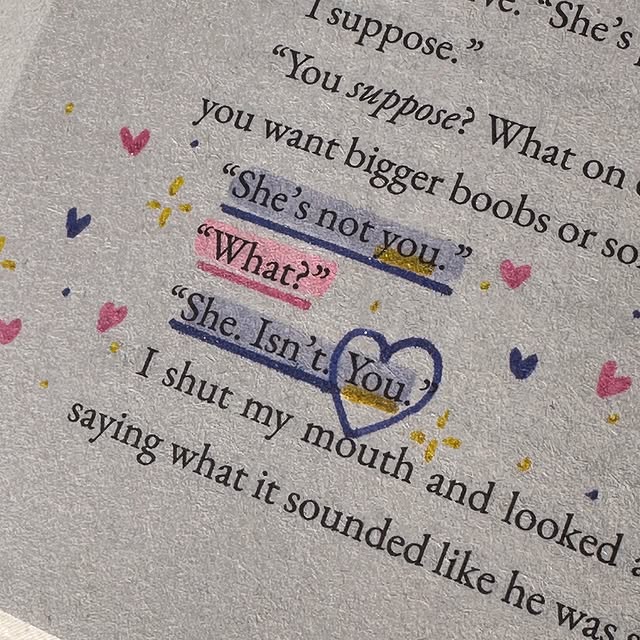 "She's
I suppose."
"You suppose? What on
you want bigger boobs or
"She's not you."
"What?"
"She. Isn't. You."
I shut my mouth and looked
saying what it sounded like he was